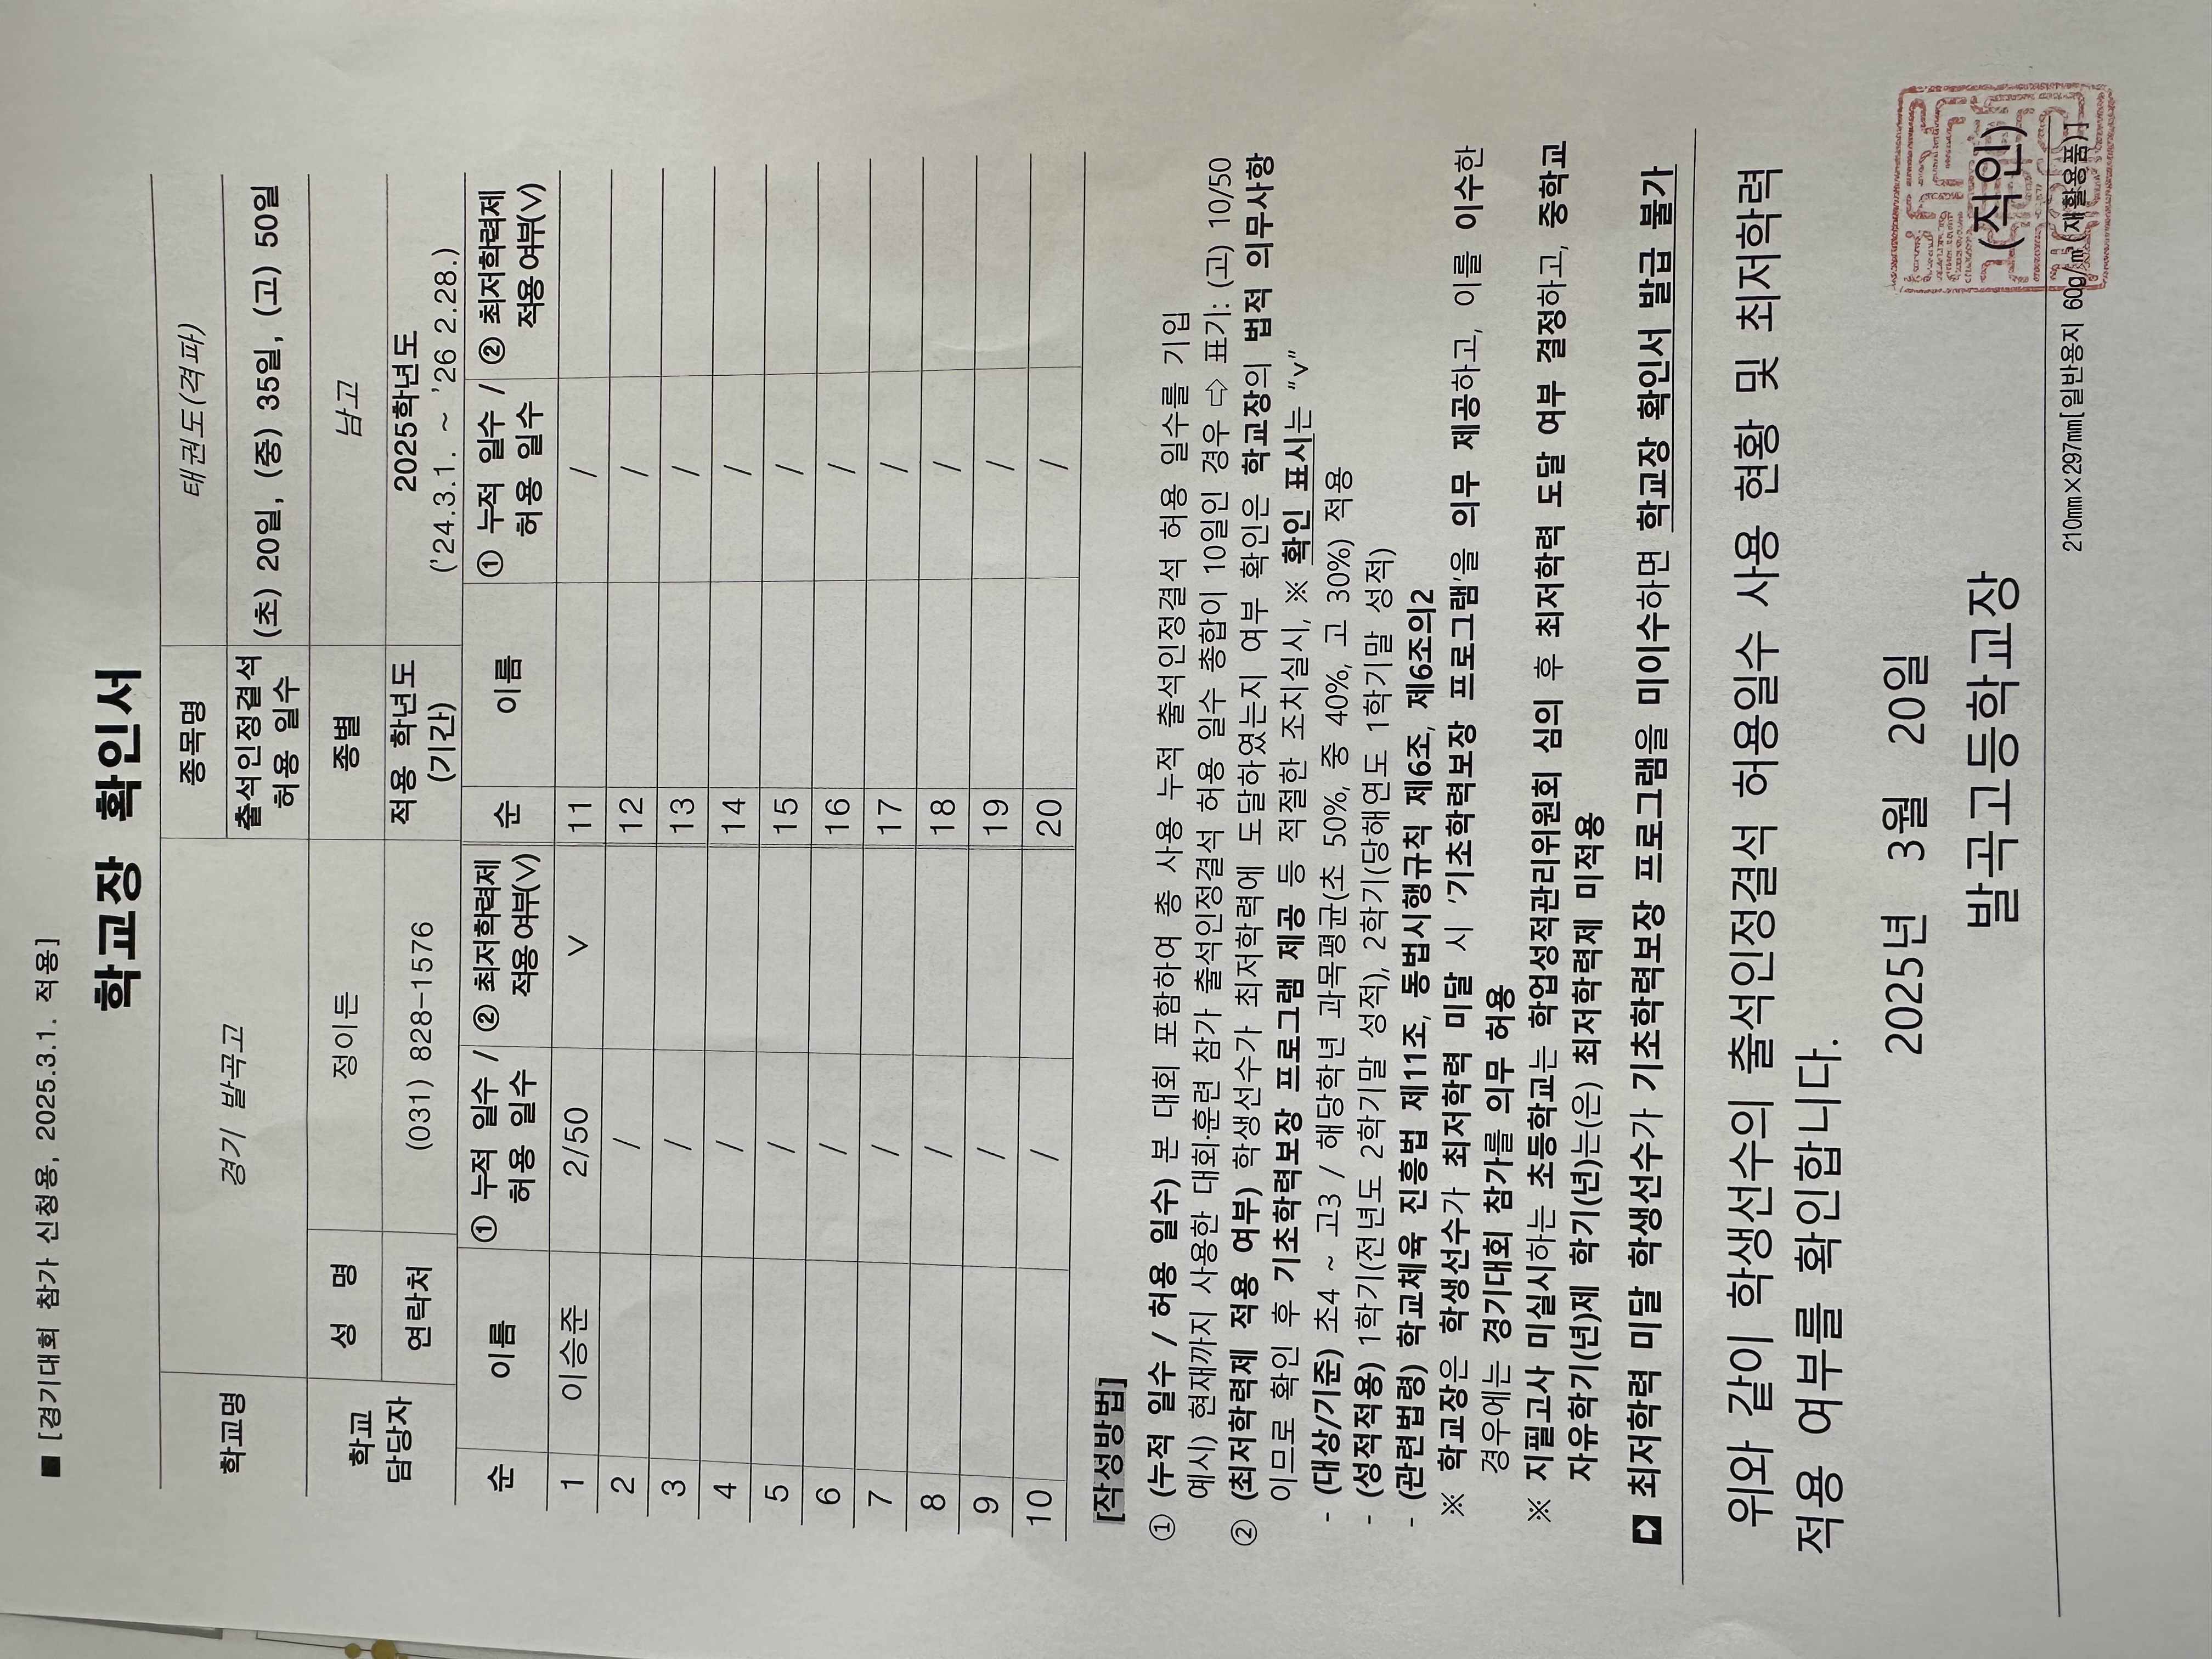 ■ [경기대회 참가 신청용, 2025.3.1. 적용]
학교장 확인서
학교명 경기 발곡고 종목명 태권도(격파)
출석인정결석 허용 일수 (초) 20일, (중) 35일, (고) 50일
학교 담당자 성 명 정이든 종별 남고
연락처 (031) 828-1576 적용 학년도 (기간) 2025학년도 ('24.3.1. ~ '26 2.28.)
순 이름 ① 누적 일수 / 허용 일수 ② 최저학력제 적용여부(V) 순 이름 ① 누적 일수 / 허용 일수 ② 최저학력제 적용여부(V)
1 이승준 2/50 V 11 /
2 / 12 /
3 / 13 /
4 / 14 /
5 / 15 /
6 / 16 /
7 / 17 /
8 / 18 /
9 / 19 /
10 / 20 /
[작성방법]
① (누적 일수 / 허용 일수) 본 대회 포함하여 총 사용 누적 출석인정결석 허용 일수를 기입
예시) 현재까지 사용한 대회·훈련 참가 출석인정결석 허용 일수 총합이 10일인 경우 ⇨ 표기: (고) 10/50
② (최저학력제 적용 여부) 학생선수가 최저학력에 도달하였는지 여부 확인은 학교장의 법적 의무사항
이므로 확인 후 기초학력보장 프로그램 제공 등 적절한 조치실시, ※ 확인 표시는 "v"
- (대상/기준) 초4 ~ 고3 / 해당학년 과목평균(초 50%, 중 40%, 고 30%) 적용
- (성적적용) 1학기(전년도 2학기말 성적), 2학기(당해연도 1학기말 성적)
- (관련법령) 학교체육 진흥법 제11조, 동법시행규칙 제6조, 제6조의2
※ 학교장은 학생선수가 최저학력 미달 시 '기초학력보장 프로그램'을 의무 제공하고, 이를 이수한
경우에는 경기대회 참가를 의무 허용
※ 지필고사 미실시하는 초등학교는 학업성적관리위원회 심의 후 최저학력 도달 여부 결정하고, 중학교
자유학기(년)제 학기(년)는(은) 최저학력제 미적용
➲ 최저학력 미달 학생선수가 기초학력보장 프로그램을 미이수하면 학교장 확인서 발급 불가
위와 같이 학생선수의 출석인정결석 허용일수 사용 현황 및 최저학력
적용 여부를 확인합니다.
2025년 3월 20일
발곡고등학교장 (직인)
210㎜×297㎜[일반용지 60g/㎡(재활용품)]